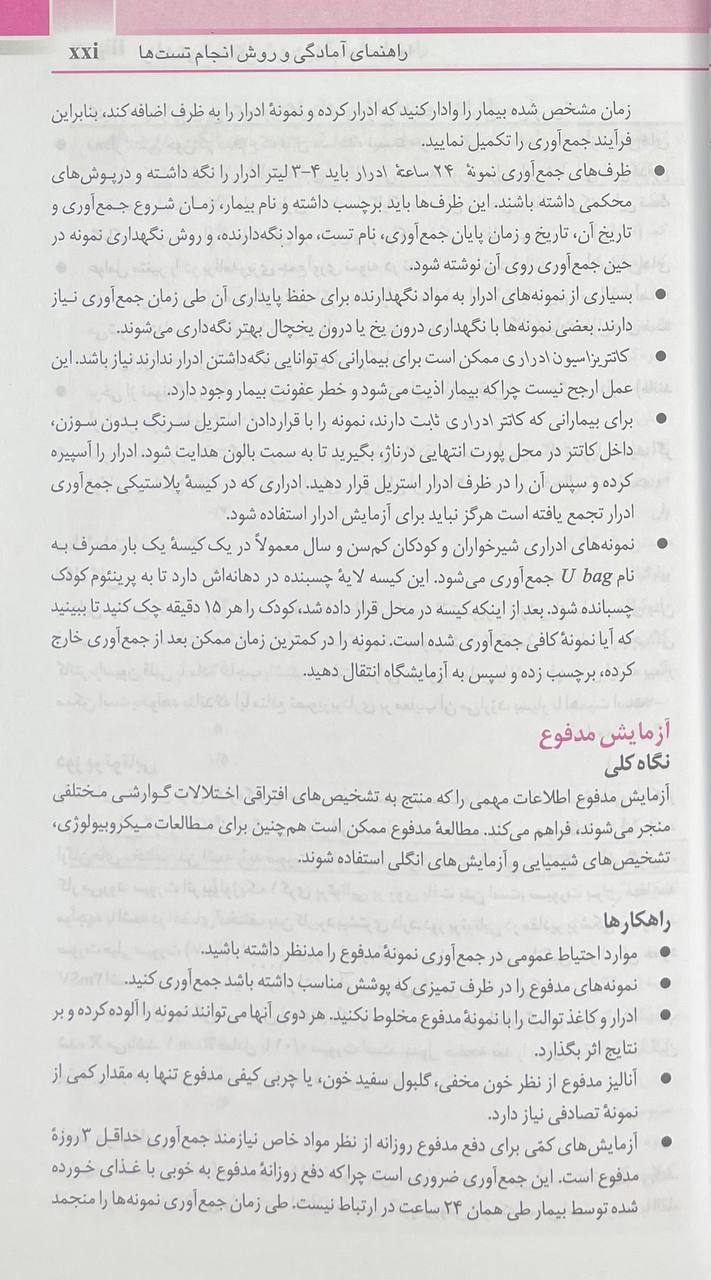 راهنمای آمادگی و روش انجام تست‌ها xxi
زمان مشخص شده بیمار را وادار کنید که ادرار کرده و نمونهٔ ادرار را به ظرف اضافه کند، بنابراین
فرآیند جمع‌آوری را تکمیل نمایید.
● ظرف‌های جمع‌آوری نمونهٔ ۲۴ ساعتهٔ ادرار باید ۴-۳ لیتر ادرار را نگه داشته و درپوش‌های
محکمی داشته باشند. این ظرف‌ها باید برچسب داشته و نام بیمار، زمان شروع جمع‌آوری و
تاریخ آن، تاریخ و زمان پایان جمع‌آوری، نام تست، مواد نگه‌دارنده، و روش نگهداری نمونه در
حین جمع‌آوری روی آن نوشته شود.
● بسیاری از نمونه‌های ادرار به مواد نگهدارنده برای حفظ پایداری آن طی زمان جمع‌آوری نیاز
دارند. بعضی نمونه‌ها با نگهداری درون یخ یا درون یخچال بهتر نگه‌داری می‌شوند.
● کاتتریزاسیون ادراری ممکن است برای بیمارانی که توانایی نگه‌داشتن ادرار ندارند نیاز باشد. این
عمل ارجح نیست چراکه بیمار اذیت می‌شود و خطر عفونت بیمار وجود دارد.
● برای بیمارانی که کاتتر ادراری ثابت دارند، نمونه را با قراردادن استریل سرنگ بدون سوزن،
داخل کاتتر در محل پورت انتهایی درناژ، بگیرید تا به سمت بالون هدایت شود. ادرار را آسپیره
کرده و سپس آن را در ظرف ادرار استریل قرار دهید. ادراری که در کیسهٔ پلاستیکی جمع‌آوری
ادرار تجمع یافته است هرگز نباید برای آزمایش ادرار استفاده شود.
● نمونه‌های ادراری شیرخواران و کودکان کم‌سن و سال معمولاً در یک کیسهٔ یک بار مصرف به
نام U bag جمع‌آوری می‌شود. این کیسه لایهٔ چسبنده در دهانه‌اش دارد تا به پرینئوم کودک
چسبانده شود. بعد از اینکه کیسه در محل قرار داده شد، کودک را هر ۱۵ دقیقه چک کنید تا ببینید
که آیا نمونهٔ کافی جمع‌آوری شده است. نمونه را در کمترین زمان ممکن بعد از جمع‌آوری خارج
کرده، برچسب زده و سپس به آزمایشگاه انتقال دهید.
آزمایش مدفوع
نگاه کلی
آزمایش مدفوع اطلاعات مهمی را که منتج به تشخیص‌های افتراقی اختلالات گوارشی مختلفی
منجر می‌شوند، فراهم می‌کند. مطالعهٔ مدفوع ممکن است هم‌چنین برای مطالعات میکروبیولوژی،
تشخیص‌های شیمیایی و آزمایش‌های انگلی استفاده شوند.
راهکارها
● موارد احتیاط عمومی در جمع‌آوری نمونهٔ مدفوع را مدنظر داشته باشید.
● نمونه‌های مدفوع را در ظرف تمیزی که پوشش مناسب داشته باشد جمع‌آوری کنید.
● ادرار و کاغذ توالت را با نمونهٔ مدفوع مخلوط نکنید. هر دوی آنها می‌توانند نمونه را آلوده کرده و بر
نتایج اثر بگذارد.
● آنالیز مدفوع از نظر خون مخفی، گلبول سفید خون، یا چربی کیفی مدفوع تنها به مقدار کمی از
نمونهٔ تصادفی نیاز دارد.
● آزمایش‌های کمّی برای دفع مدفوع روزانه از نظر مواد خاص نیازمند جمع‌آوری حداقل ۳ روزهٔ
مدفوع است. این جمع‌آوری ضروری است چراکه دفع روزانهٔ مدفوع به خوبی با غذای خورده
شده توسط بیمار طی همان ۲۴ ساعت در ارتباط نیست. طی زمان جمع‌آوری نمونه‌ها را منجمد